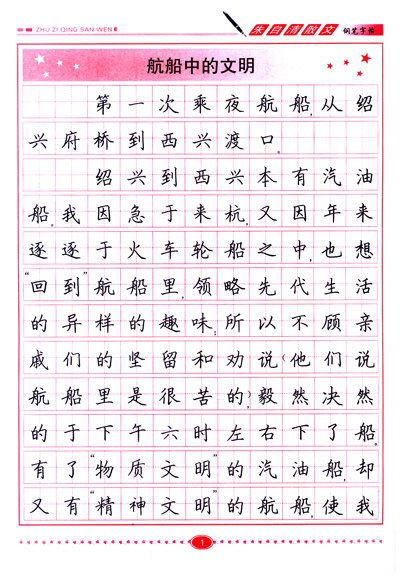 ZHU ZI QING SAN WEN
朱自清散文 钢笔字帖
航船中的文明
第一次乘夜航船,从绍
兴府桥到西兴渡口。
绍兴到西兴本有汽油
船。我因急于来杭,又因年来
逐逐于火车轮船之中,也想
“回到”航船里,领略先代生活
的异样的趣味;所以不顾亲
戚们的坚留和劝说(他们说
航船里是很苦的),毅然决然
的于下午六时左右下了船。
有了“物质文明”的汽油船,却
又有“精神文明”的航船,使我
1